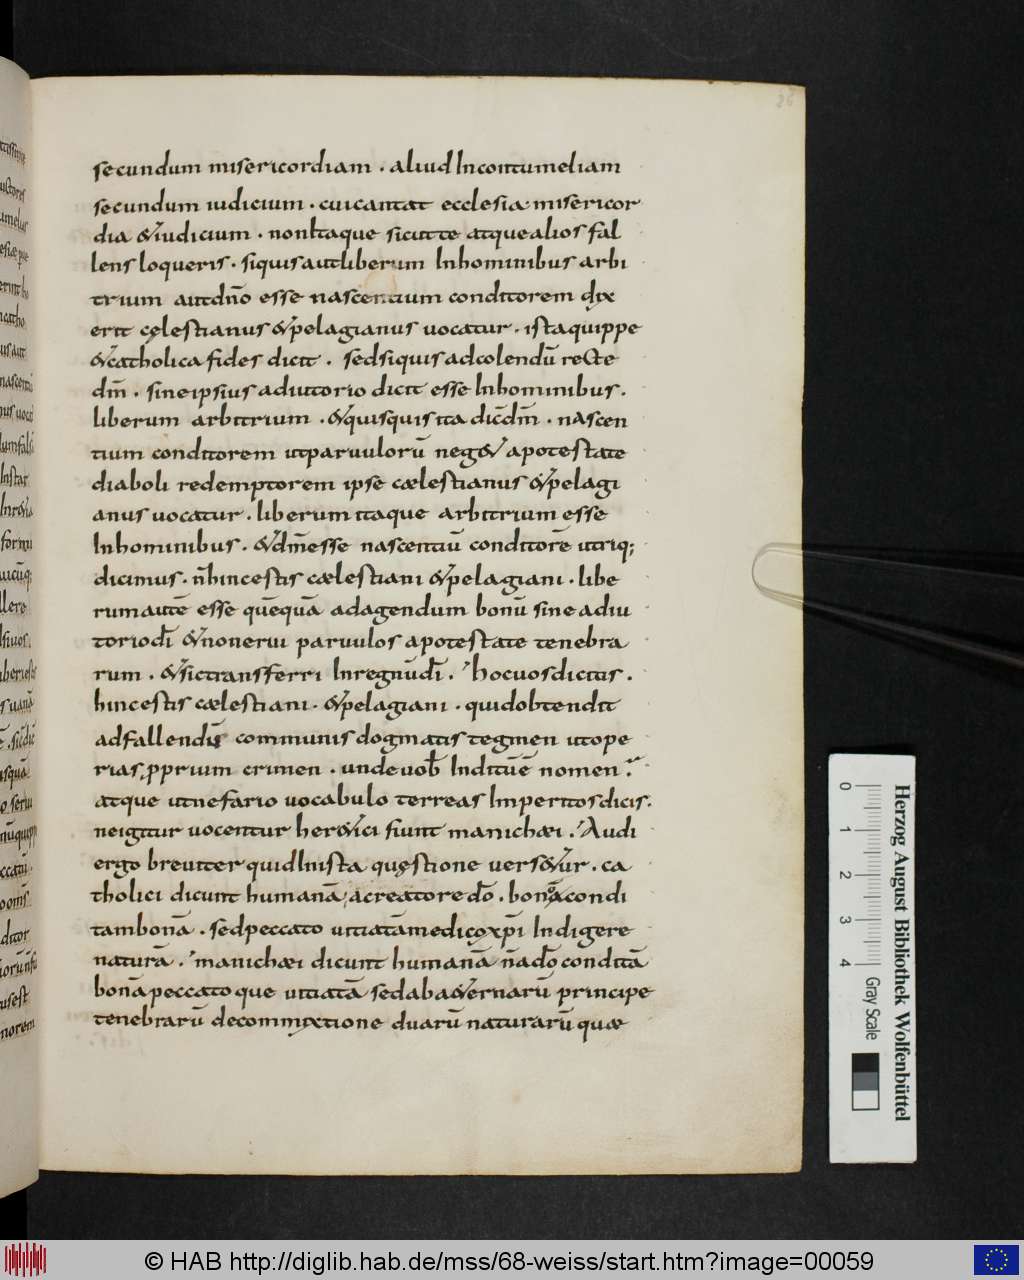 26
secundum misericordiam · aliud Incontumeliam
secundum iudicium · cuicantat ecclesia misericor
dia &iudicium · nonItaque sicutte atquealios fal
lens loqueris · siquisautliberum Inhominibus arbi
trium autdn̄o esse nascentium conditorem dix
erit cęlestianus &pelagianus uocatur · istaquippe
&catholica fides dicit · sedsiquisadcolendū recte
dm̄ · sineipsius adiutorio dicit esse Inhominibus ·
liberum arbitrium · &quisquisita dic̄dm̄ · nascen
tium conditorem utparuulorū neg& apotestate
diaboli redemptorem ipse cælestianus &pelagi
anus uocatur · liberum itaque arbitrium esse
Inhominibus · &dm̄esse nascentiū conditorē utriq;
dicimus · n̄hincestis cælestiani &pelagiani · libe
rumautē esse quēquā adagendum bonū sine adiu
toriodī &nonerui paruulos apotestate tenebra
rum · &sictransferri Inregnūdī · hocuosdicitis ·
hincestis cælestiani · &pelagiani · quidobtendit
adfallendū communis dogmatis tegmen utope
rias pprium crimen · undeuob̄ Inditūē nomen ·
atque utnefario uocabulo terreas Imperitosdicis ·
neigitur uocentur her&ici fiunt manichæi · Audi
ergo breuiter quidInista quęstione uers&ur · ca
tholici dicunt humanā acreatore dō · bonoacondi
tambonā · sedpeccato uitiatāmedicoxp̄i Indigere
naturā · manichæi dicunt humanā n̄adōconditā
bonāpeccatoque uitiatā sedaba&ernarū principe
tenebrarū decommixtione duarū naturarū quæ
0
1
2
3
4
Herzog August Bibliothek Wolfenbüttel
Gray Scale
© HAB http://diglib.hab.de/mss/68-weiss/start.htm?image=00059